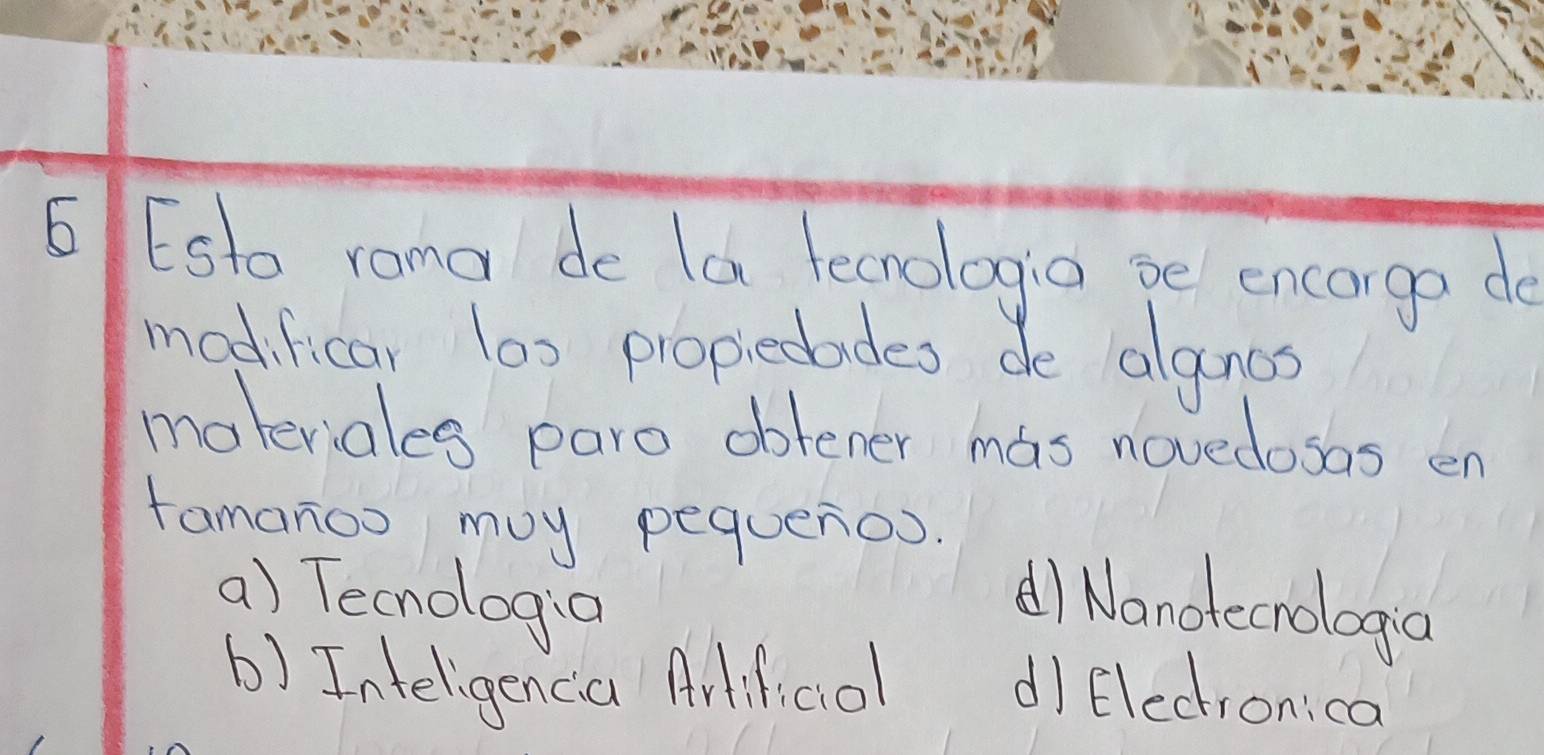 6 Esta rama de la tecnologia se encarga de
modificar las propiedades de algunos
materiales para obtener más novedosas en
tamaños muy pequeños.
a) Tecnologia
d) Nanotecnologia
b) Inteligencia Artificial
d) Electronica